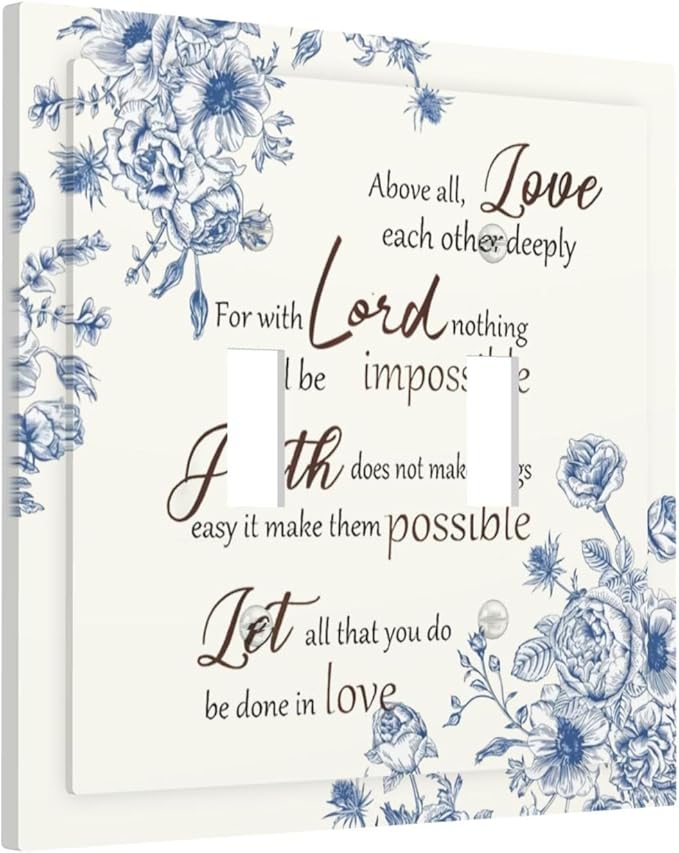 Above all, Love
each other deeply
For with Lord nothing
be impossible
Faith does not make
easy it make them possible
Let all that you do
be done in love